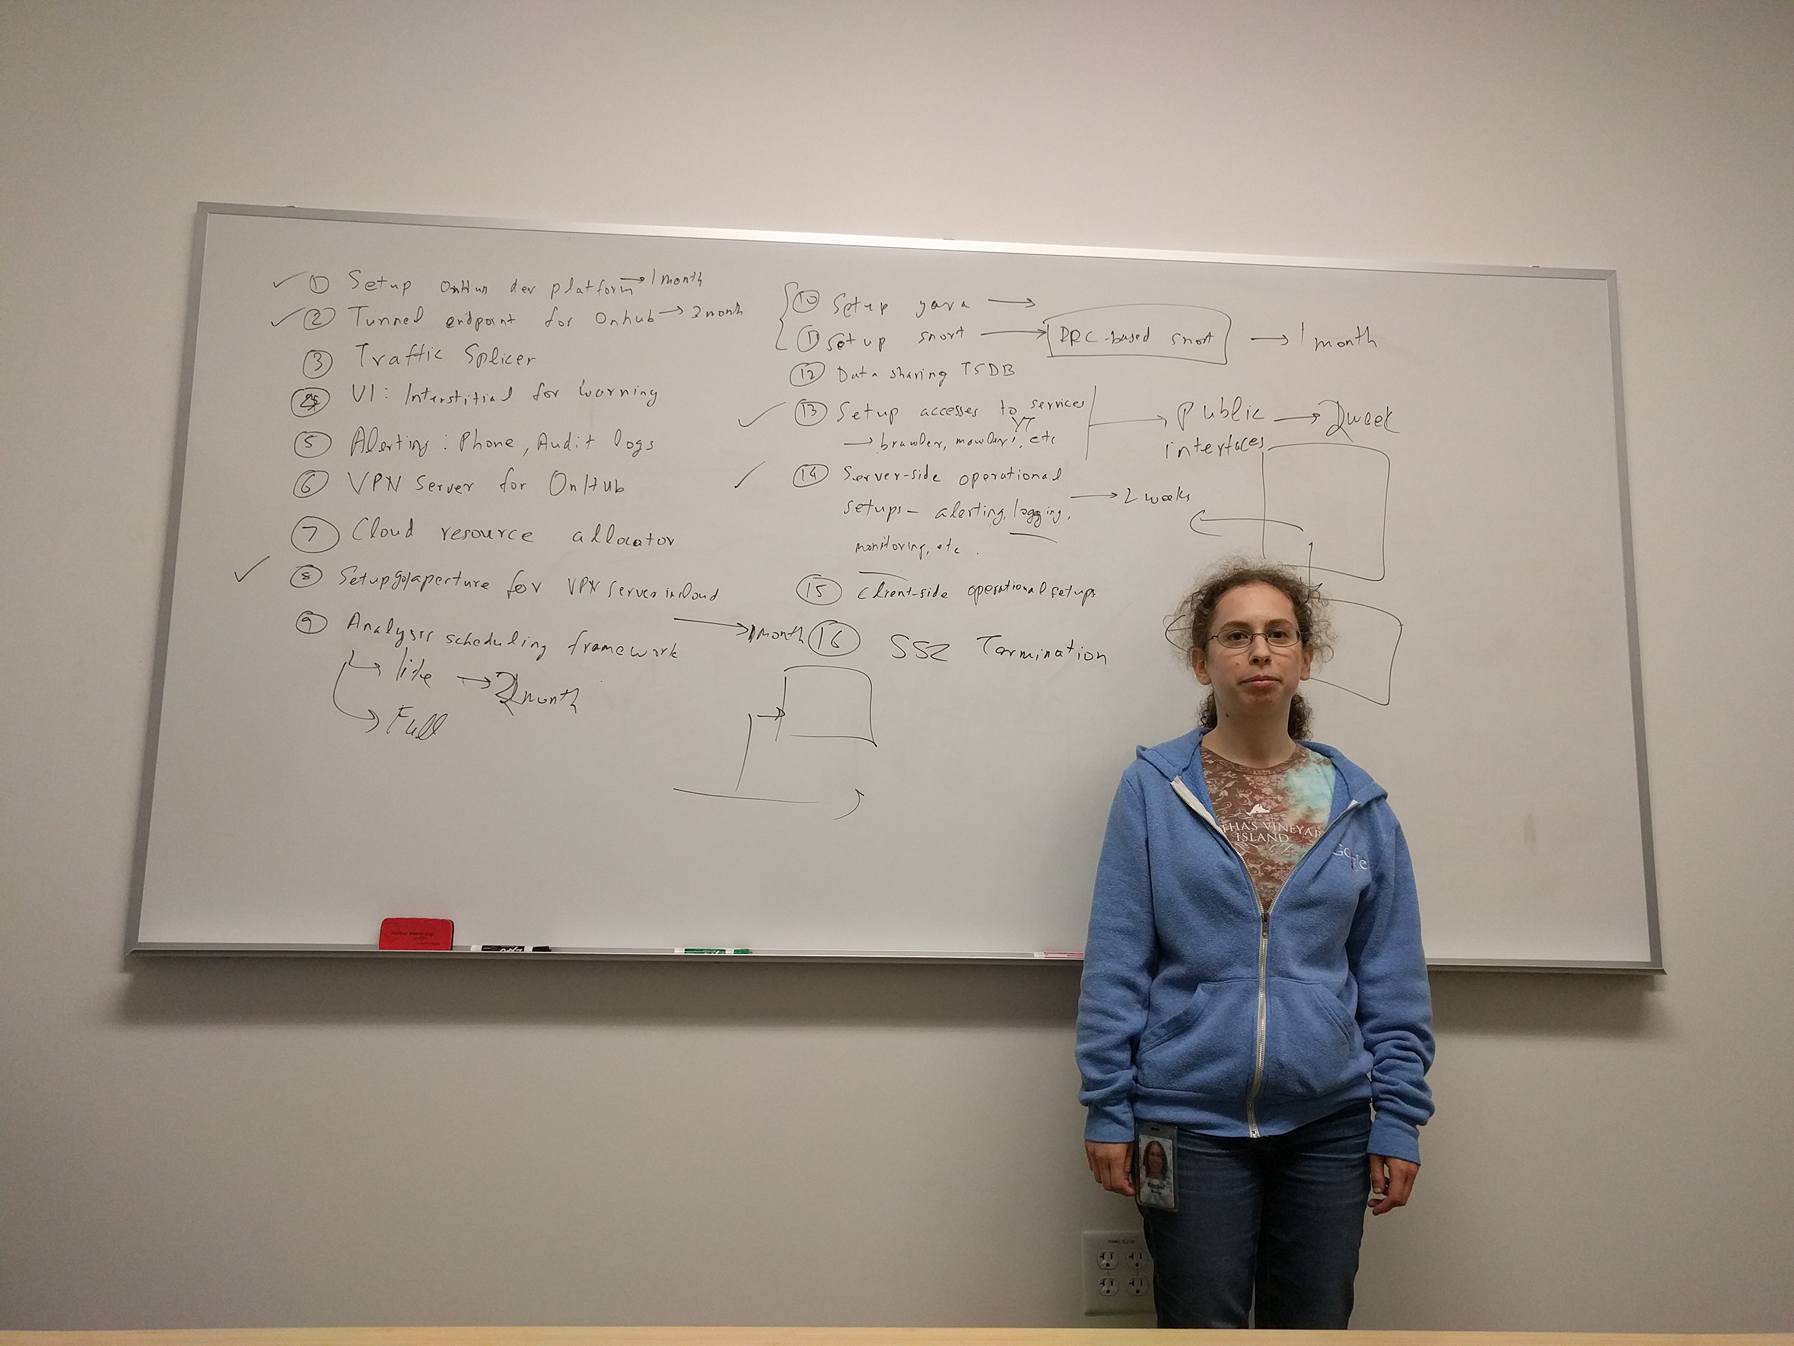 ✓ ① Setup OnHub dev platform → 1 month
✓ ② Tunnel endpoint for Onhub → 2 month
③ Traffic Splicer
④ UI: Interstitial for warning
⑤ Alerting: Phone, Audit logs
⑥ VPN Server for OnHub
⑦ Cloud resource allocator
✓ ⑧ Setup go/aperture for VPN server in cloud
→ 1 month
⑨ Analysis scheduling framework
→ lite → 2 month
→ Full
⑩ Setup yara →
⑪ Setup snort → RPC-based snort → 1 month
⑫ Data sharing TSDB
✓ ⑬ Setup accesses to services → public → 2 week
→ etc interfaces
✓ ⑭ Server-side operational
setups – alerting, logging, → 2 weeks
monitoring, etc.
⑮ Client-side operational setups
⑯ SSL Termination
THA'S VINEYAR
ISLAND
Google